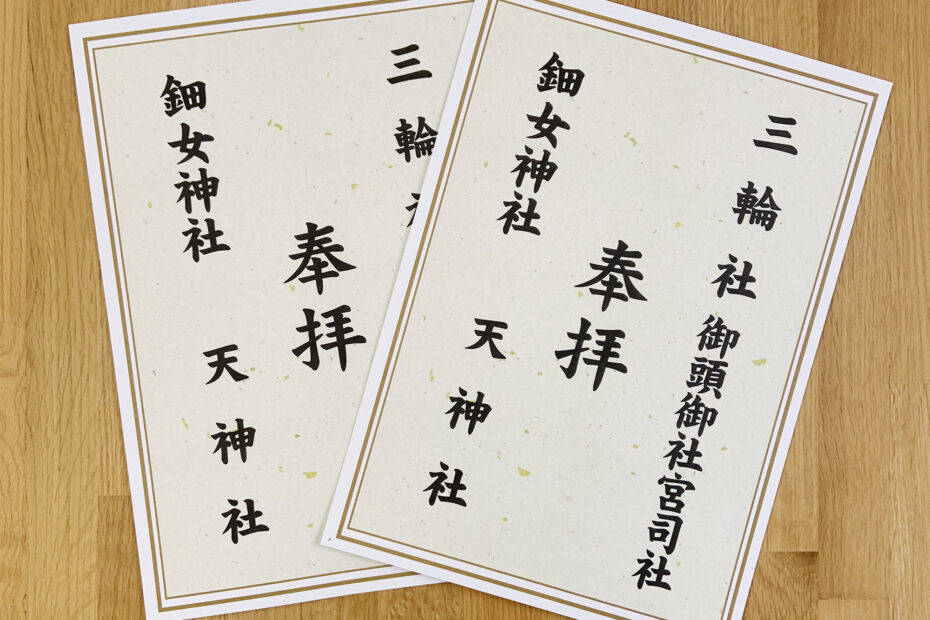 三輪社
奉拝
鈿女神社
天神社
三輪社
御頭御社宮司社
奉拝
鈿女神社
天神社